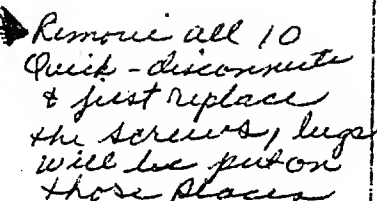 Remove all 10
Quick-disconnects
& just replace
the screws, lugs
will be put on
those places